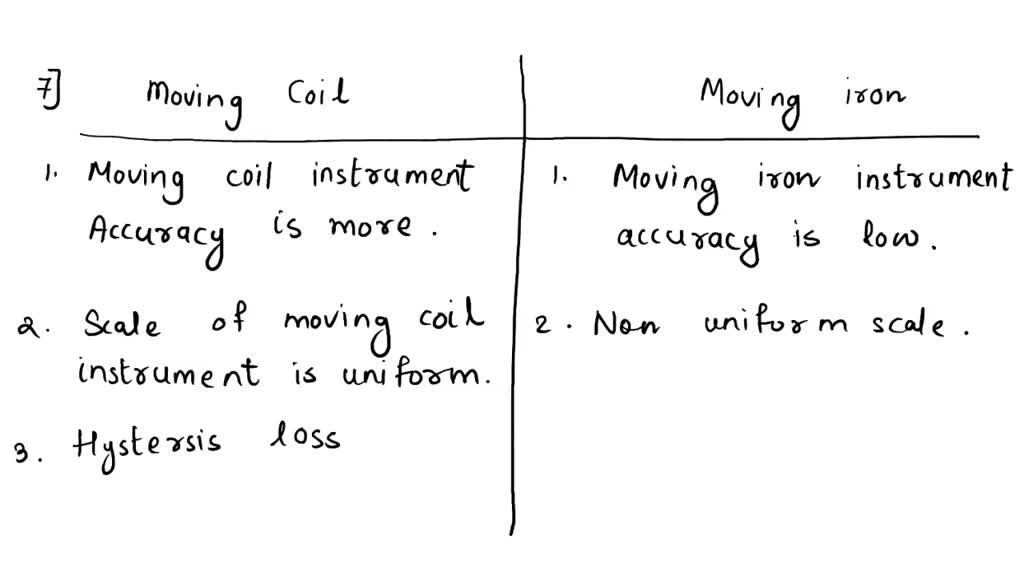 7]
Moving Coil
Moving iron
1. Moving coil instrument
Accuracy is more.
1. Moving iron instrument
accuracy is low.
2. Scale of moving coil
instrument is uniform.
2. Non uniform scale.
3. Hystersis loss